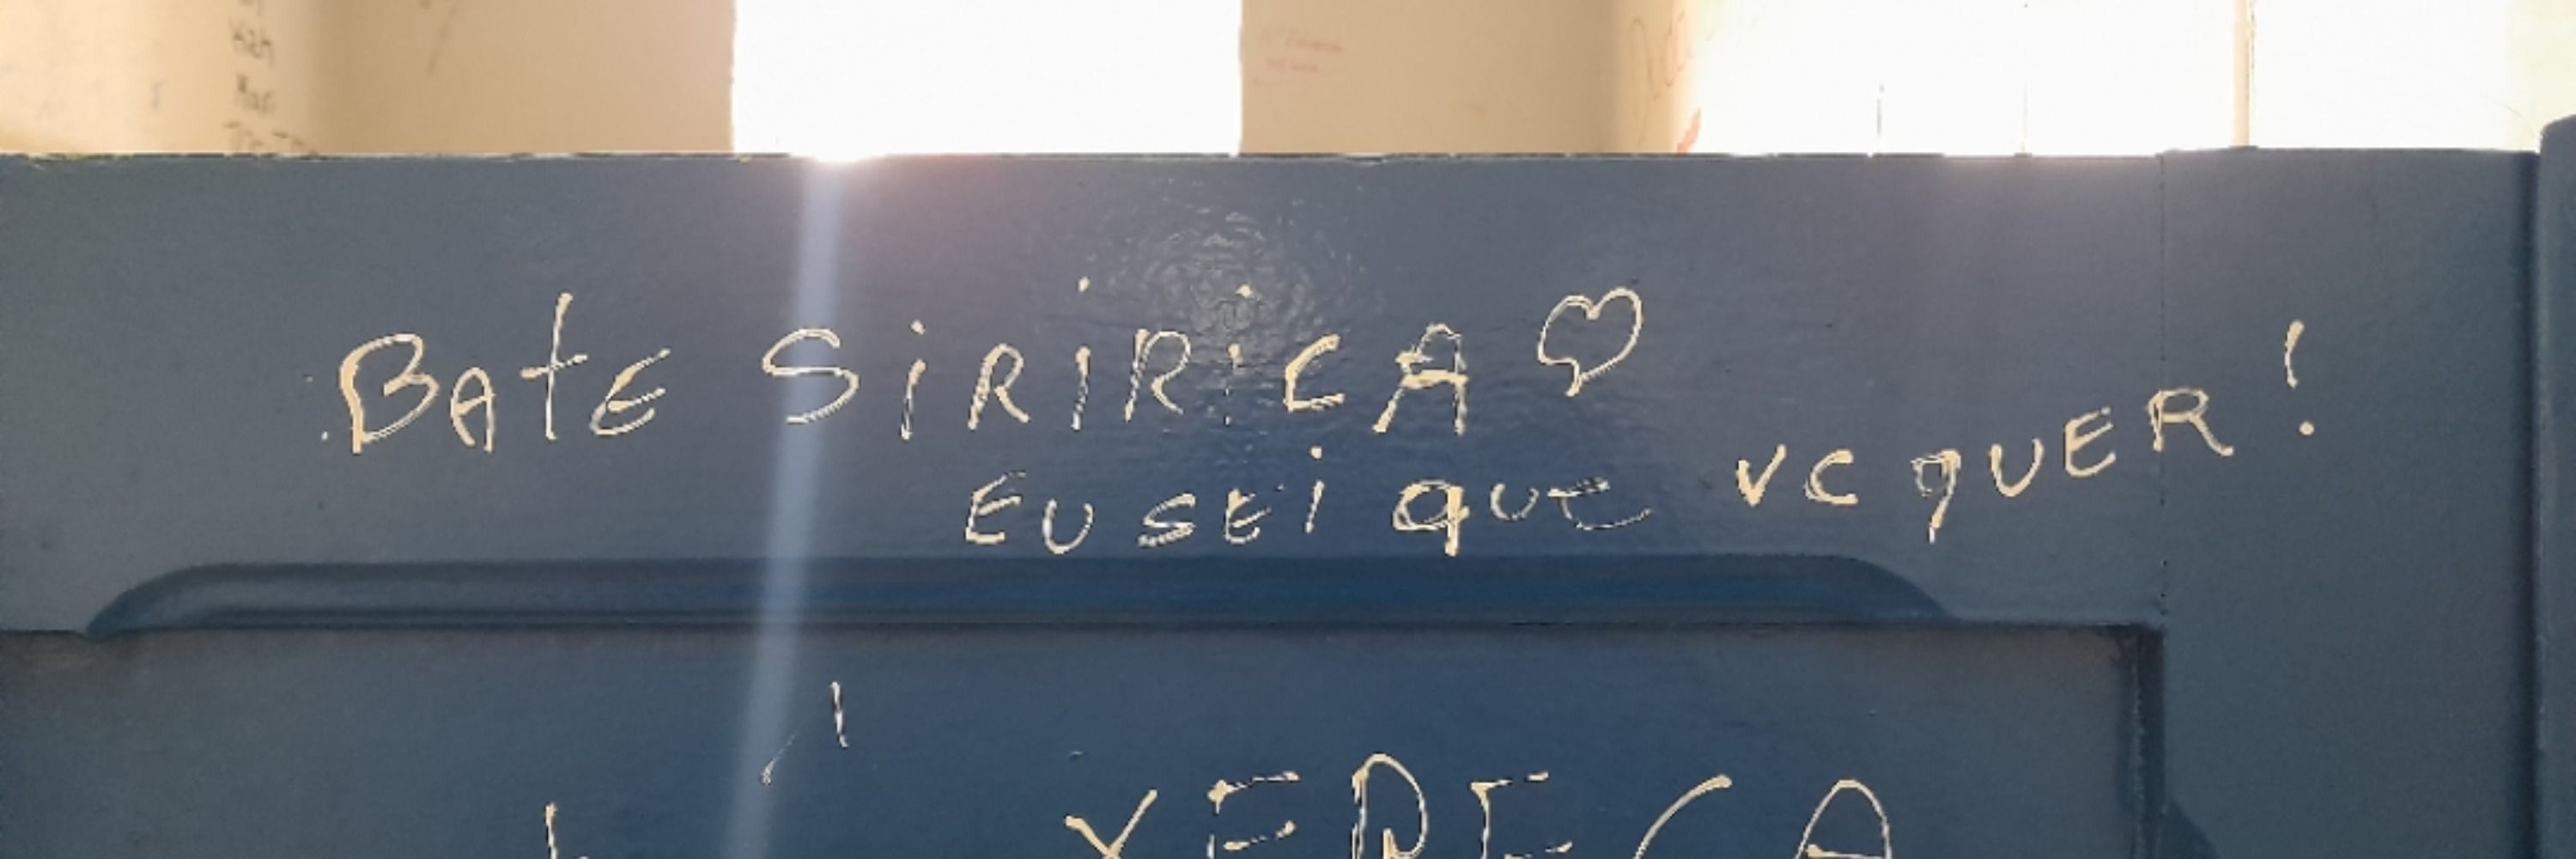 Kah
BAtE SiRiRiCA
EU SEi que vc quER!
XERECA